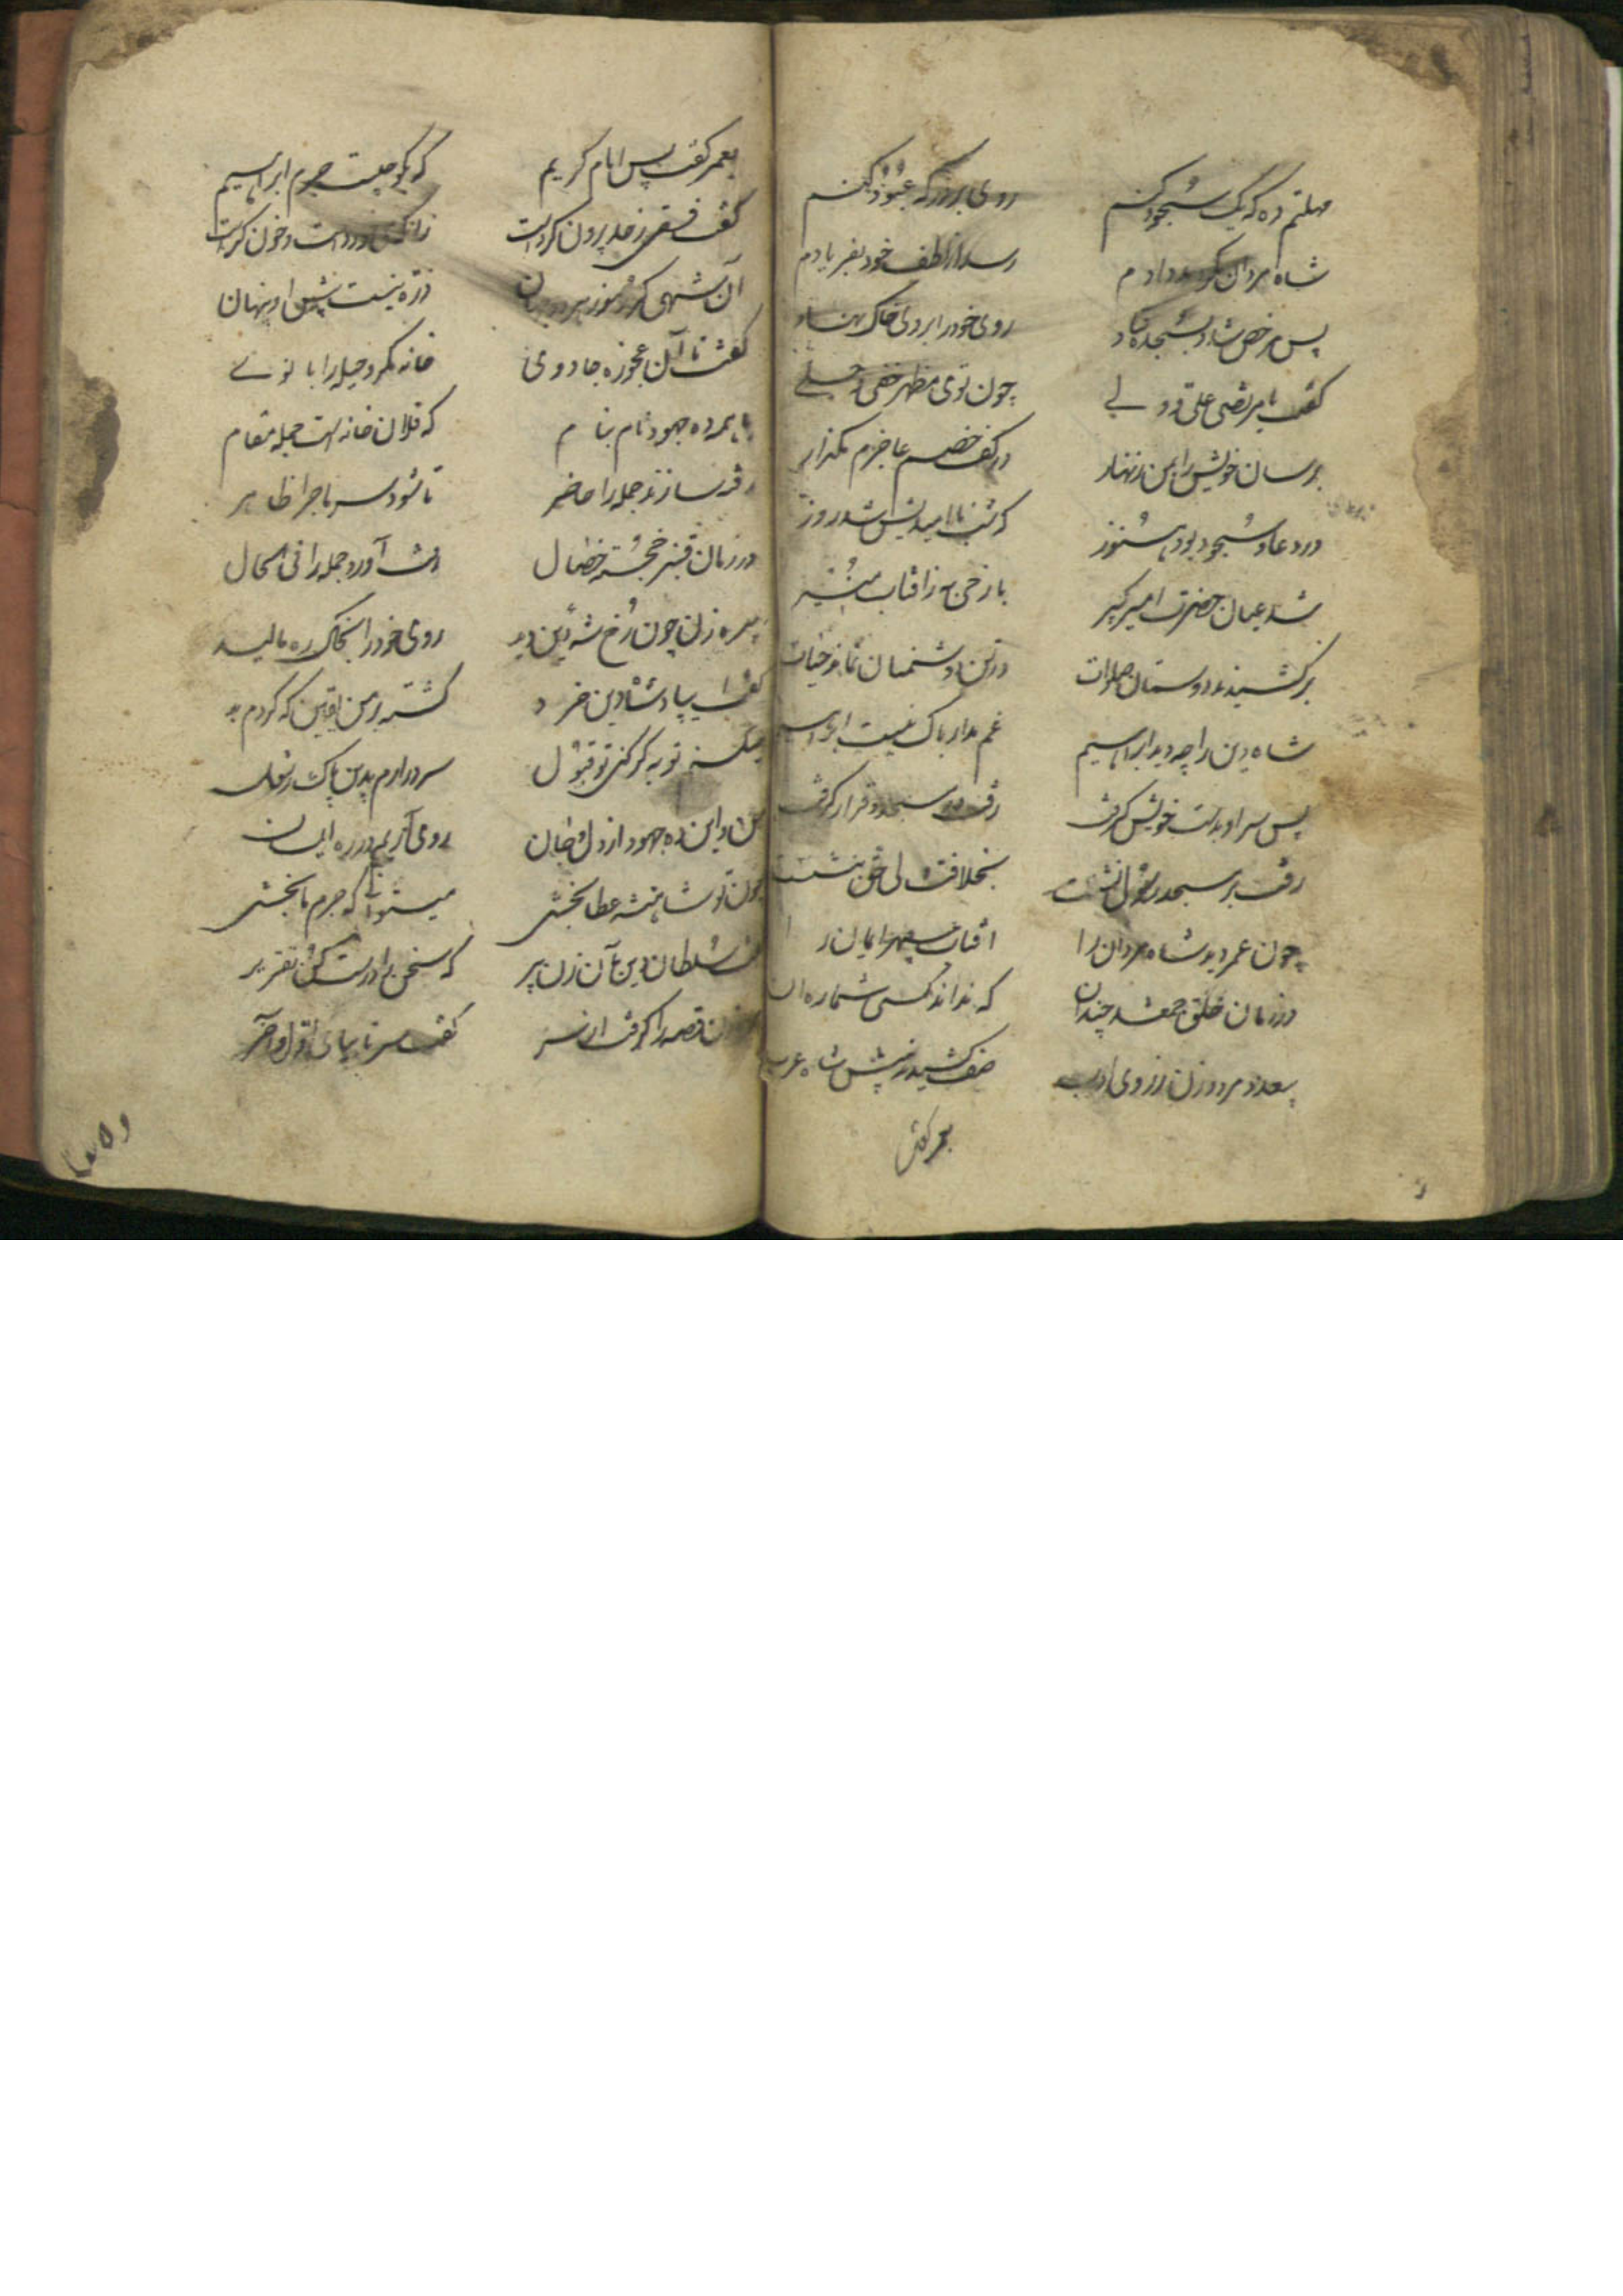 مهلتم ده که یک سجود کنم روی بر درگه عبود کنم
شاه مردان کند مدد دادم رسد از لطف خود بفریادم
پس مرخص شد و بسجده فتاد روی خود را بروی خاک نهاد
گفت یا مرتضی علی ولی چون توی مظهر خفی و جلی
برسان خویش را بمن زنهار در کف خصم عاجزم مگذار
در دعا و سجود بود هنوز که شب ناامیدیش شد روز
شد عیان حضرت امیر کبیر با رخی به ز افتاب منیر
برکشیدند دوستان صلوات در تن دشمنان نماند حیات
شاه دین را چو دید ابراهیم غم مدار باک نیست ابراهیم
پس سر او بدست خویش گرفت رفت و در مسجد و قرار گرفت
رفت بر مسجد رسول نشست بخلافت ولی حق بنشست
چون عمر دید شاه مردان را افتاب سپهر ایمان را
در زمان خلق جمع شد چندان که نداند کسی شماره آن
بعد مرد و زن ز روی ادب صف کشیدند پیش شاه عرب
بعمر گفت
بعمر گفت پس امام کریم که بگو چیست جرم ابراهیم
گفت فسقی ز حد برون کرد است زانکه دزدی است و خون کرد است
آن شهی کز رموز هر دو جهان ذره نیست پیش او پنهان
گفت تا آن عجوزه جادوی خانه مکر و حیله را بانوی
با همه ده جهود نام بنام که فلان خانه است جمله مقام
رفته سازند جمله را حاضر تا شود سر ماجرا ظاهر
در زمان قنبر خجسته خصال رفت آورد جمله را فی الحال
پیره زن چون رخ شه دین دید روی خود را بخاک ره مالید
گفت ای پادشاه دین خرد گشته بر من یقین که کردم بد
میکنم توبه گر کنی تو قبول سر درارم بدین پاک رسول
من و این ده جهود از دل و جان روی آریم در ره ایمان
چون تو شاهنشه عطا بخشی میتوانی که جرم ما بخشی
گفت سلطان دین بآن زن پیر که سخن را درست کن تقریر
زن قصه را گرفت از سر گفت سر تا بپای اول و آخر